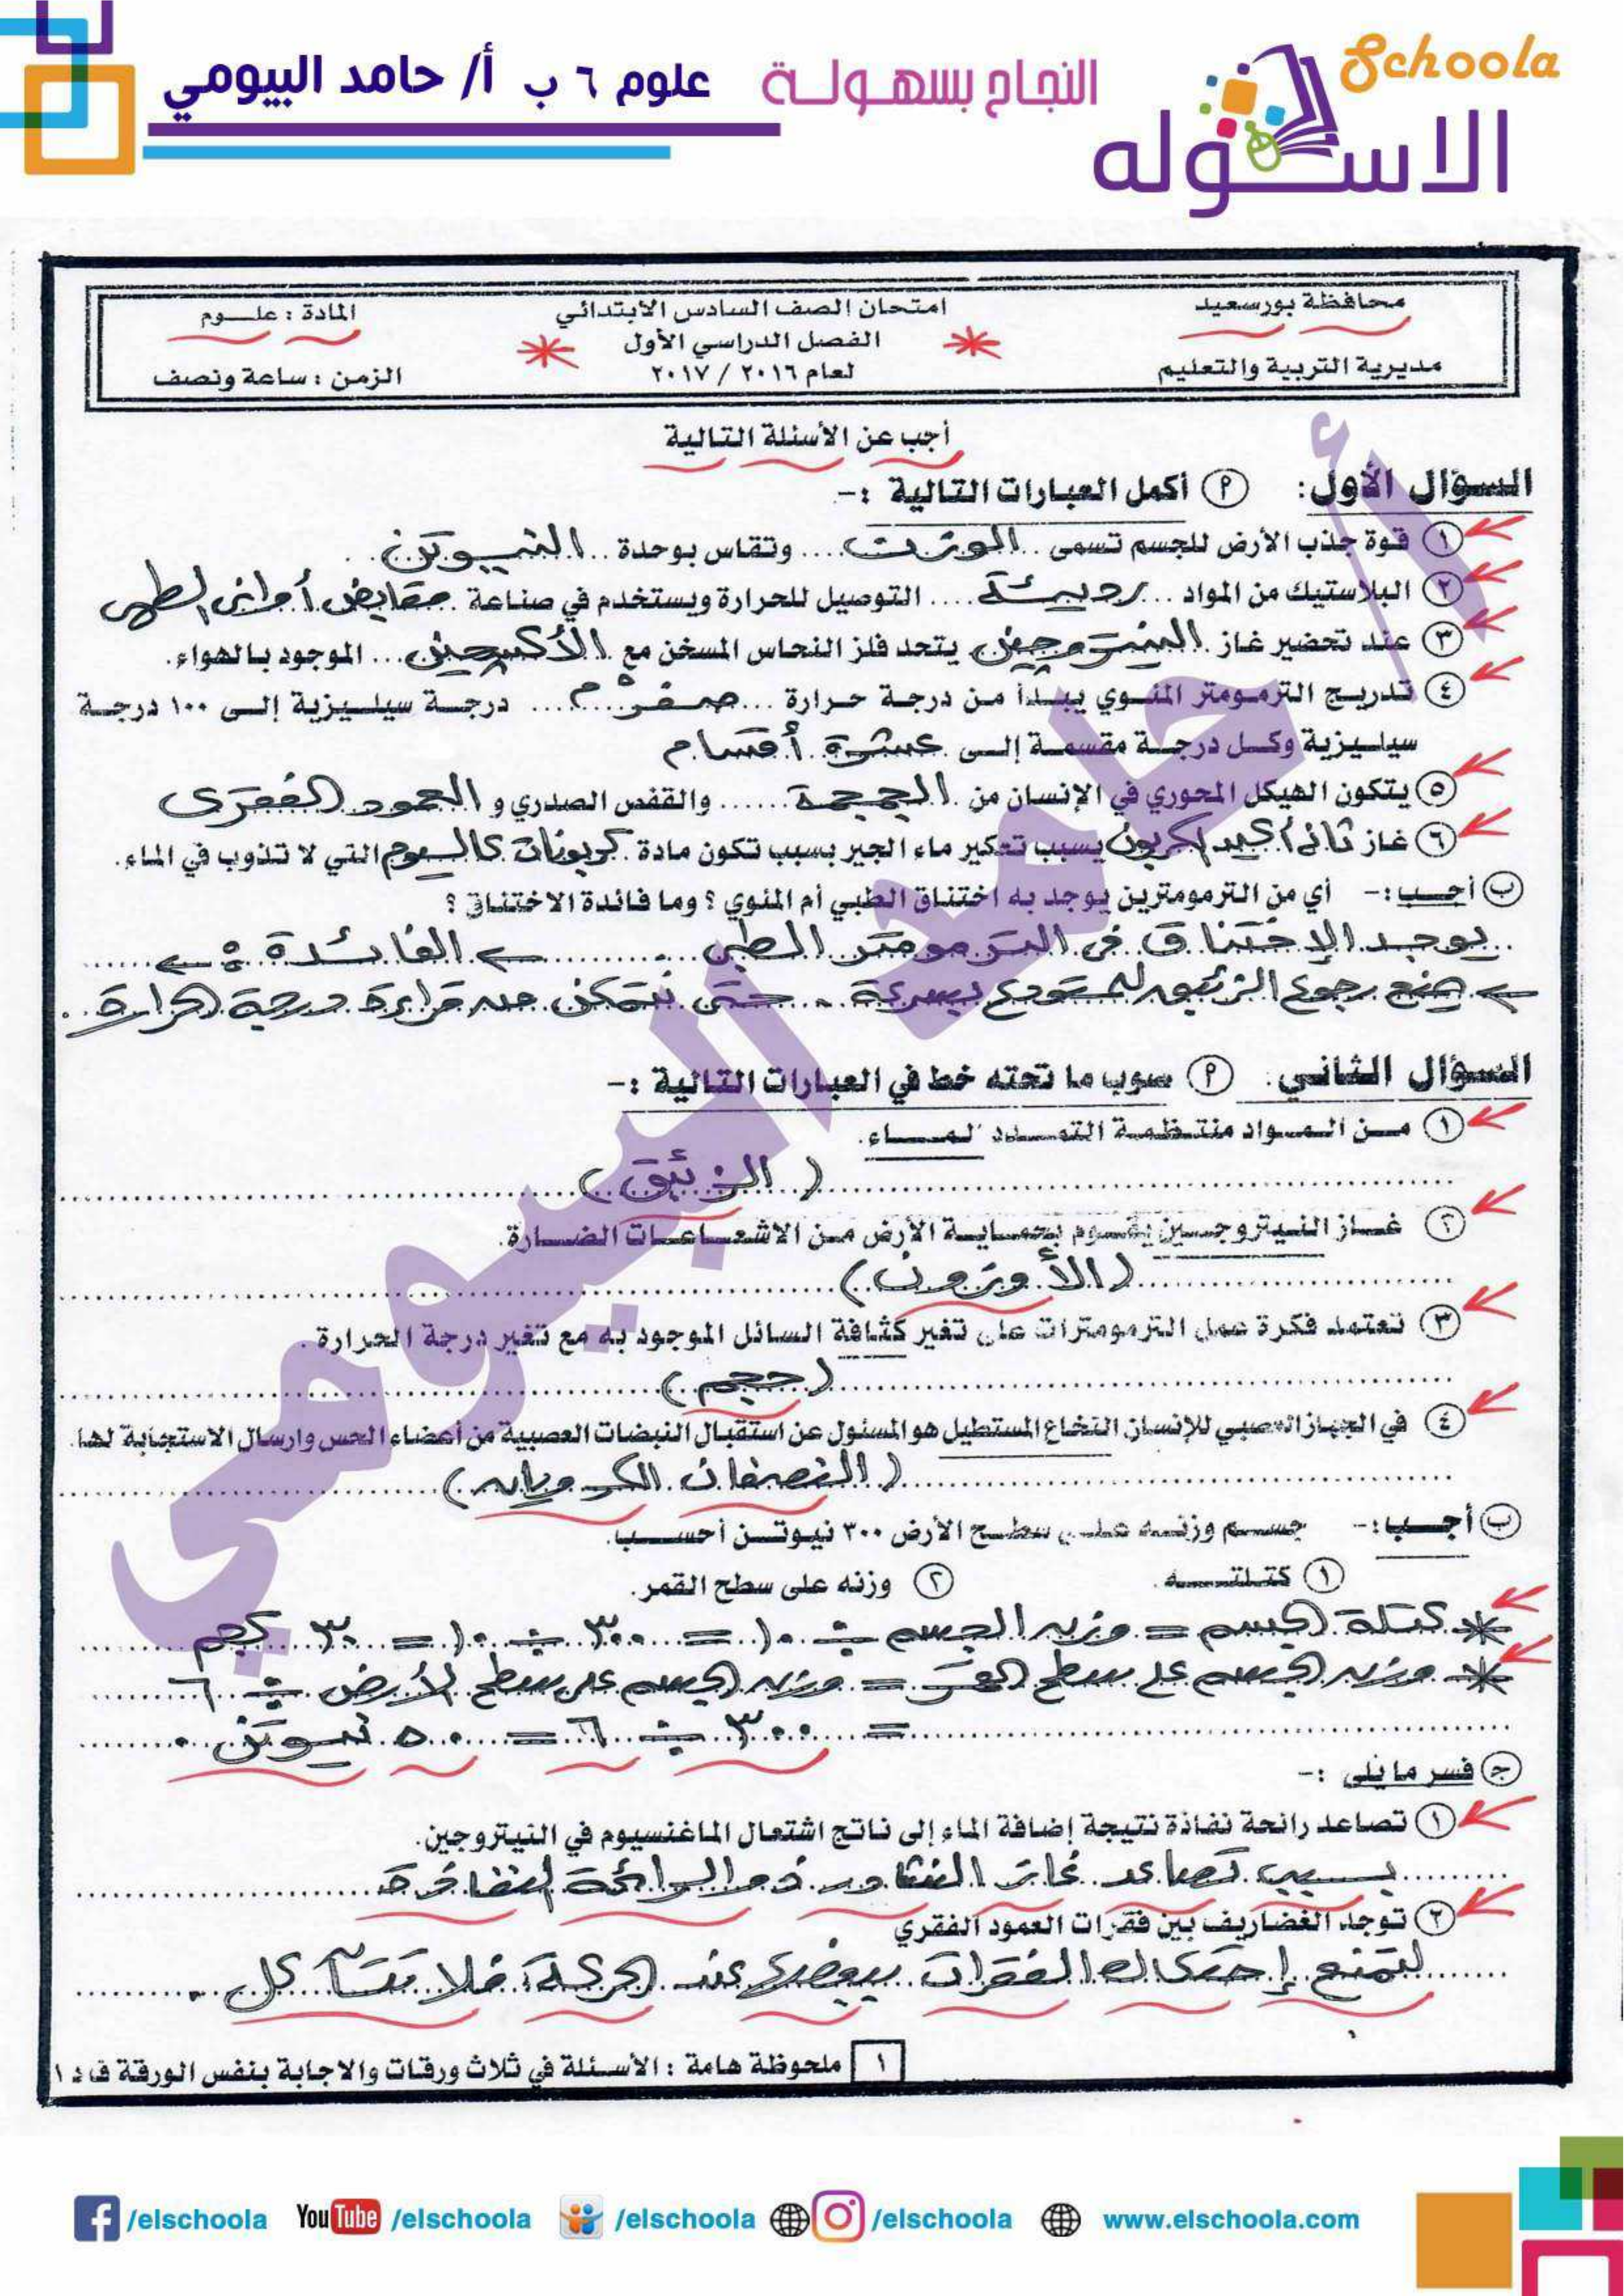 Schoola
الاسكوله
النجاح بسهولة
علوم ٦ ب أ/ حامد البيومي
محافظة بورسعيد
مديرية التربية والتعليم
امتحان الصف السادس الابتدائي
الفصل الدراسي الأول
لعام ٢٠١٦ / ٢٠١٧
المادة : علوم
الزمن : ساعة ونصف
أجب عن الأسئلة التالية
السؤال الأول: أ أكمل العبارات التالية :-
١ قوة جذب الأرض للجسم تسمى .. الوزن .... وتقاس بوحدة .. النيوتن .
٢ البلاستيك من المواد ... رديئة .... التوصيل للحرارة ويستخدم في صناعة . مقابض أواني الطهي
٣ عند تحضير غاز . النيتروجين يتحد فلز النحاس المسخن مع . الأكسجين ... الموجود بالهواء.
٤ تدريج الترمومتر المئوي يبدأ من درجة حرارة ... صفر°م .... درجة سيليزية إلى ١٠٠ درجة
سيليزية وكل درجة مقسمة إلى . عشرة أقسام
٥ يتكون الهيكل المحوري في الإنسان من . الجمجمة ...... والقفص الصدري و العمود الفقري
٦ غاز ثاني أكسيد الكربون يسبب تعكير ماء الجير بسبب تكون مادة . كربونات كالسيوم التي لا تذوب في الماء.
ب أجب :- أي من الترمومترين يوجد به اختناق الطبي أم المئوي ؟ وما فائدة الاختناق ؟
يوجد الإختناق في الترمومتر الطبي ← الفائدة :- ←
← يمنع رجوع الزئبق للمستودع بسرعة .. حتى نتمكن من قراءة درجة الحرارة .
السؤال الثاني. أ صوب ما تحته خط في العبارات التالية :-
١ من المواد منتظمة التمدد الماء.
( الزئبق )
٢ غاز النيتروجين يقوم بحماية الأرض من الاشعاعات الضارة.
( الأوزون )
٣ تعتمد فكرة عمل الترمومترات على تغير كثافة السائل الموجود به مع تغير درجة الحرارة .
( حجم )
٤ في الجهاز العصبي للإنسان النخاع المستطيل هو المسئول عن استقبال النبضات العصبية من أعضاء الحس وارسال الاستجابة لها.
( النصفان الكرويان )
ب أجب :- جسم وزنه على سطح الأرض ٣٠٠ نيوتن أحسب.
١ كتلته . ٢ وزنه على سطح القمر.
* كتلة الجسم = وزن الجسم ÷ ١٠ = ٣٠٠ ÷ ١٠ = ٣٠ كجم
* وزن الجسم على سطح القمر = وزن الجسم على سطح الأرض ÷ ٦
= ٣٠٠ ÷ ٦ = ٥٠ نيوتن .
ج فسر ما يلى :-
١ تصاعد رائحة نفاذة نتيجة إضافة الماء إلى ناتج اشتعال الماغنسيوم في النيتروجين.
بسبب تصاعد غاز النشادر ذو الرائحة النفاذة
٢ توجد الغضاريف بين فقرات العمود الفقري
لتمنع إحتكاك الفقرات ببعضها عند الحركة فلا تتآكل .
١ ملحوظة هامة : الأسئلة في ثلاث ورقات والاجابة بنفس الورقة ف د ١
أ حامد البيومي
/elschoola YouTube /elschoola /elschoola /elschoola www.elschoola.com